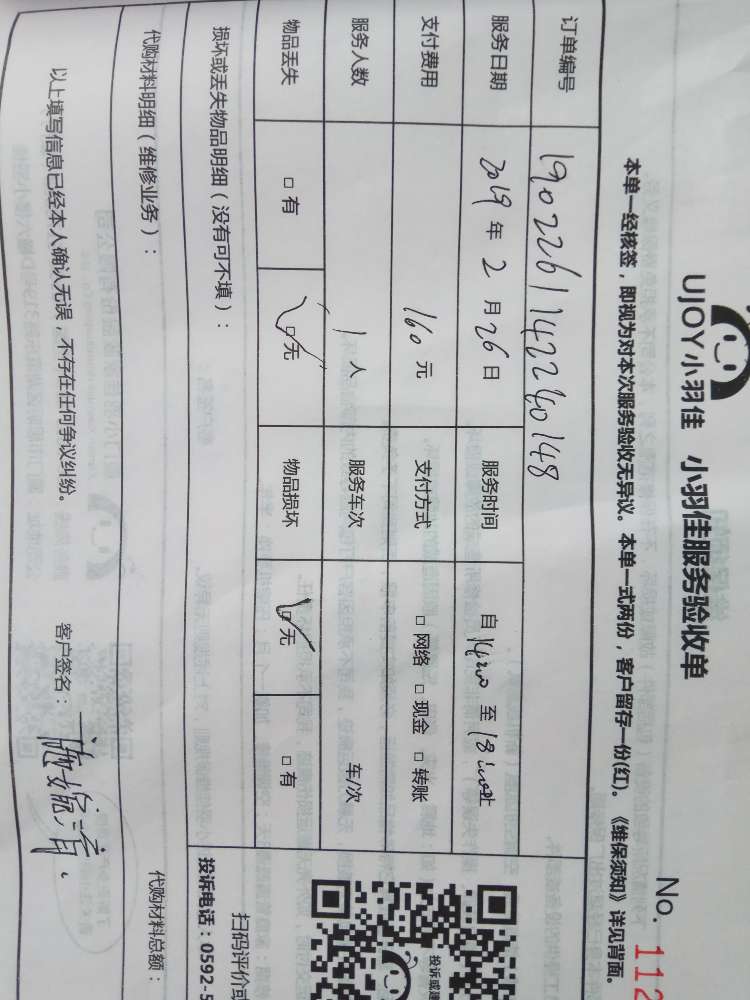 UJOY小羽佳 小羽佳服务验收单
No. 112
本单一经核签，即视为对本次服务验收无异议。本单一式两份，客户留存一份(红)。《维保须知》详见背面。
订单编号 1902261142240148
服务日期 2019 年 2 月 26 日 服务时间 自 14:00 至 18:00 止
支付费用 160 元 支付方式 □ 网络 □ 现金 □ 转账
服务人数 1 人 服务车次 车/次
物品丢失 □ 有 ☑ 无 物品损坏 ☑ 无 □ 有
损坏或丢失物品明细（没有可不填）：
代购材料明细（维修业务）：
代购材料总额：
以上填写信息已经本人确认无误，不存在任何争议纠纷。 客户签名：
投诉或建
扫码评价或
投诉电话：0592-5